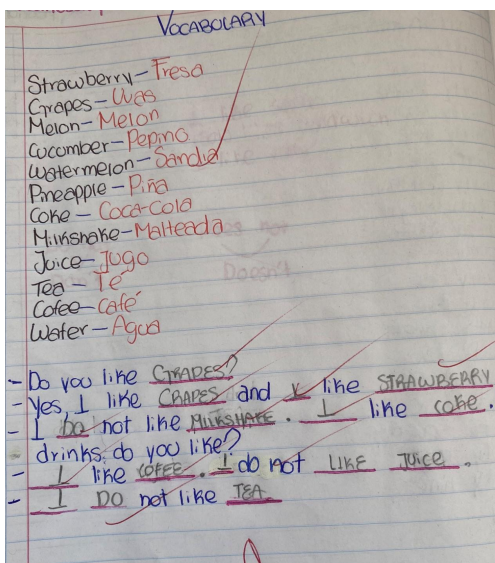 VOCABULARY
Strawberry - Fresa
Grapes - Uvas
Melon - Melon
Cucumber - Pepino
Watermelon - Sandia
Pineapple - Piña
Coke - Coca-Cola
Milkshake - Malteada
Juice - Jugo
Tea - Té
Cofee - Café
Water - Agua
- Do you like GRAPES?
- Yes, I like GRAPES and I like STRAWBERRY
- I DO not like MILKSHAKE. I like coke.
drinks do you like?
- I like COFFEE. I do not LIKE Juice.
- I DO not like TEA